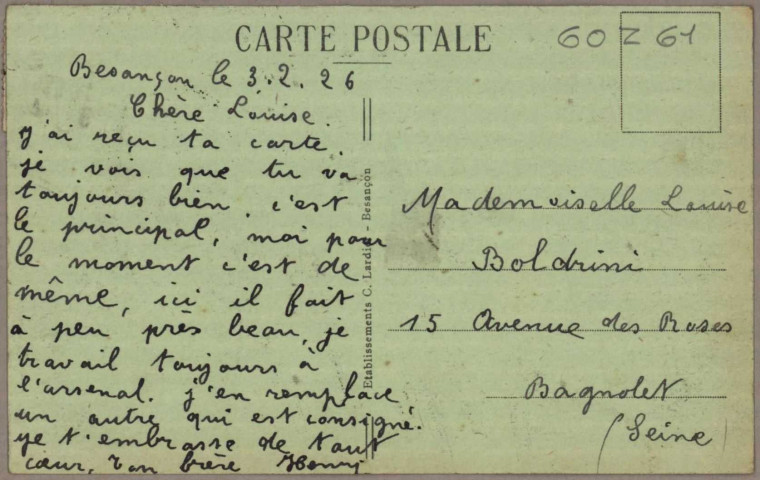 CARTE POSTALE
60 Z 61
Besançon le 3.2.26
Chère Louise.
J'ai reçu ta carte,
je vois que tu va
toujours bien, c'est
le principal, moi pour
le moment c'est de
même, ici il fait
à peu près beau, je
travail toujours à
l'arsenal. j'en remplace
un autre qui est consigné.
je t'embrasse de tout
cœur, ton frère Henri
Etablissements C. Lardier - Besançon
Mademoiselle Louise
Boldrini
15 Avenue des Roses
Bagnolet
(Seine)